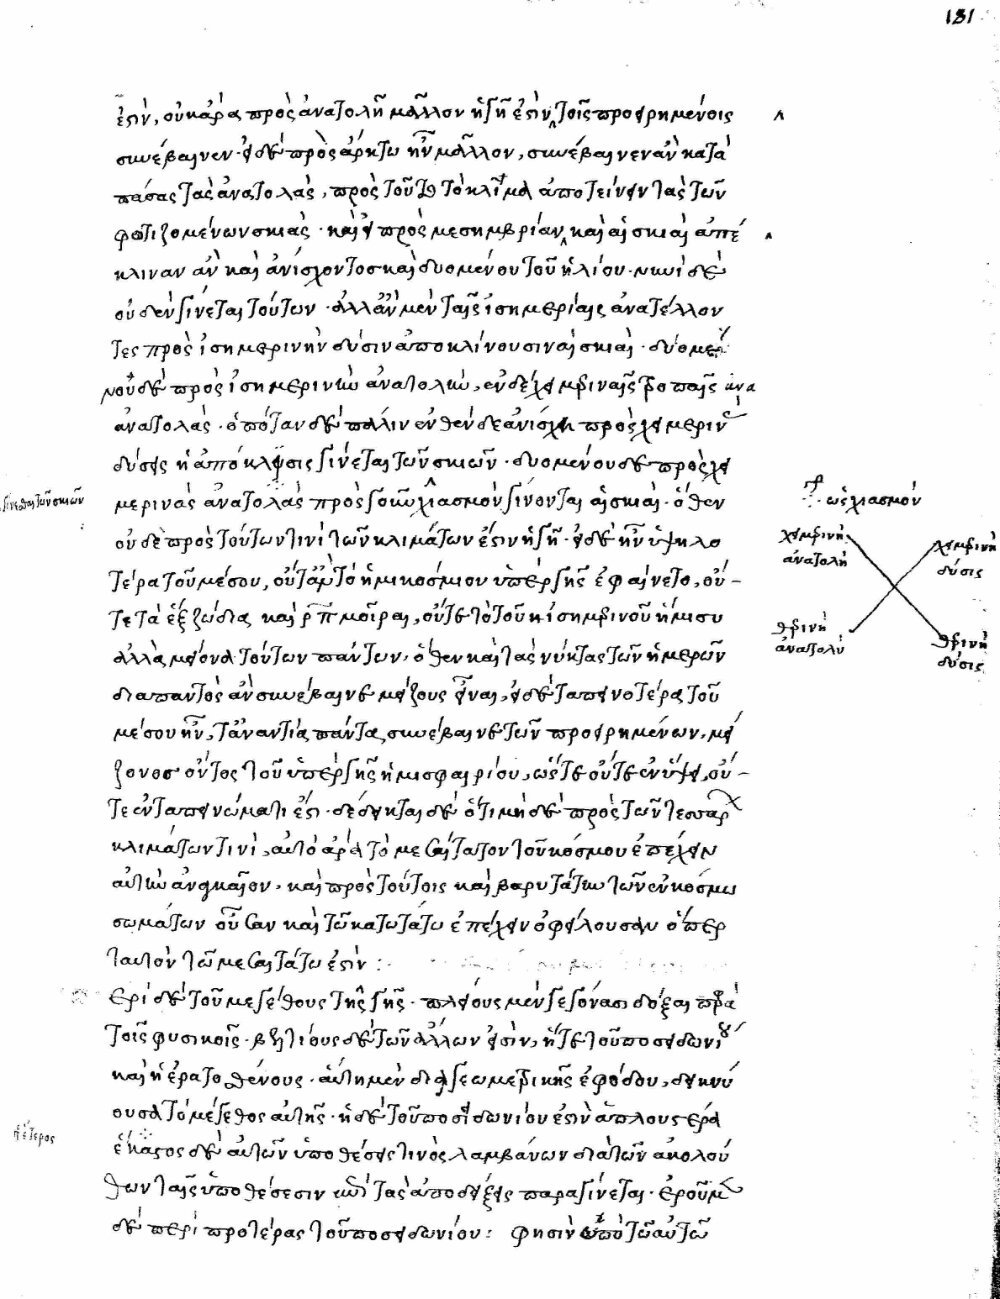 131
ἐστιν, οὐκ ἄρα πρὸς ἀνατολῇ μᾶλλον ἡ γῆ ἐστὶν. τοῖς προειρημένοις
συνέβαινεν. εἰ δὲ πρὸς ἄρκτῳ ἦν μᾶλλον, συνέβαινεν ἂν κατὰ
πάσας τὰς ἀνατολὰς, πρὸς τοῦτο τὸ κλίμα ἀποτείνειν τὰς τῶν
φωτιζομένων σκιάς. καὶ εἰ πρὸς μεσημβρίαν, καὶ αἱ σκιαὶ ἀπέ
κλιναν ἂν καὶ ἀνίσχοντος καὶ δυομένου τοῦ ἡλίου. νυνὶ δὲ
οὐδὲν γίνεται τούτων. ἀλλ' ἂν μὲν ταῖς ἰσημερίαις ἀνατέλλον
τες πρὸς ἰσημερινὴν δύσιν ἀποκλίνουσιν αἱ σκιαὶ. δυομέ
νου δὲ πρὸς ἰσημερινὴν ἀνατολὴν, ἐν δὲ χειμεριναῖς τροπαῖς ἀνα
ἀνατολάς. ὁπόταν δὲ πάλιν ἐνθένδε ἀνίσχῃ πρὸς χειμεριν
δύσεις ἡ ἀπόκλισις γίνεται τῶν σκιῶν. δυομένου δὲ πρὸς χει
μερινὰς ἀνατολὰς πρὸς γοῦν χιασμὸν γίνονται αἱ σκιαί. ὅθεν
οὐδὲ πρὸς τούτων τινὶ τῶν κλιμάτων ἐστιν ἡ γῆ. εἰ δὲ ἦν ὑψηλο
τέρα τοῦ μέσου, οὔτ' ἂν τὸ ἡμικόσμιον ὑπὲρ γῆς ἐφαίνετο, οὔ-
τε τὰ ἓξ ζώδια καὶ ρπ μοῖραι, οὔτε τὸ τοῦ ἰσημερινοῦ ἥμισυ
ἀλλὰ μείονα τούτων πάντων. ὅθεν καὶ τὰς νύκτας τῶν ἡμερῶν
διαπαντὸς ἂν συνέβαινε μείζους εἶναι. εἰ δὲ ταπεινοτέρα τοῦ
μέσου ἦν, τἀναντία πάντα συνέβαινε τῶν προειρημένων, μεί
ζονος ὄντος τοῦ ὑπὲρ γῆς ἡμισφαιρίου, ὥστε οὔτε ἐν ὕψει, οὔ-
τε ἐν ταπεινώματι ἐστι. δέδεικται δὲ ὅτι μηδὲ πρὸς τῶν τεσσάρ
κλιμάτων τινὶ, αὐτὸ ἄρα τὸ μεσαίτατον τοῦ κόσμου ἐπέχειν
αὐτὴν ἀναγκαῖον. καὶ πρὸς τούτοις καὶ βαρυτάτην τῶν ἐν κόσμῳ
σωμάτων οὖσαν καὶ τῶ κατωτάτω ἐπέχειν ὀφείλουσαν ὅπερ
ταυτὸν τῶ μεσαιτάτω ἐστὶν :
ερὶ δὲ τοῦ μεγέθους τῆς γῆς. πλείους μὲν γεγόνασι δόξαι παρὰ
τοῖς φυσικοῖς. βελτίους δὲ τῶν ἄλλων εἰσὶν, ἥ τε τοῦ ποσειδωνίου
καὶ ἡ ἐρατοσθένους. αὕτη μὲν διὰ γεωμετρικῆς ἐφόδου, δεικνύ
ουσα τὸ μέγεθος αὐτῆς. ἡ δὲ τοῦ ποσιδωνίου ἐστὶν ἁπλουστέρα
ἕκαστος δὲ αὐτῶν ὑποθέσεις τινὰς λαμβάνων διὰ τῶν ἀκολού
θων ταῖς ὑποθέσεσιν ἐπὶ τὰς ἀποδείξεις παραγίνεται. ἐροῦμεν
δὲ περὶ προτέρας τοῦ ποσειδωνίου : φησὶν ὑπὸ τῶ αὐτῶ
γίνεσθαι τῶν σκιῶν
ὡς χιασμόν
χειμερινὴ
ἀνατολὴ
χειμερινὴ
δύσις
θερινὴ
ἀνατολὴ
θερινὴ
δύσις